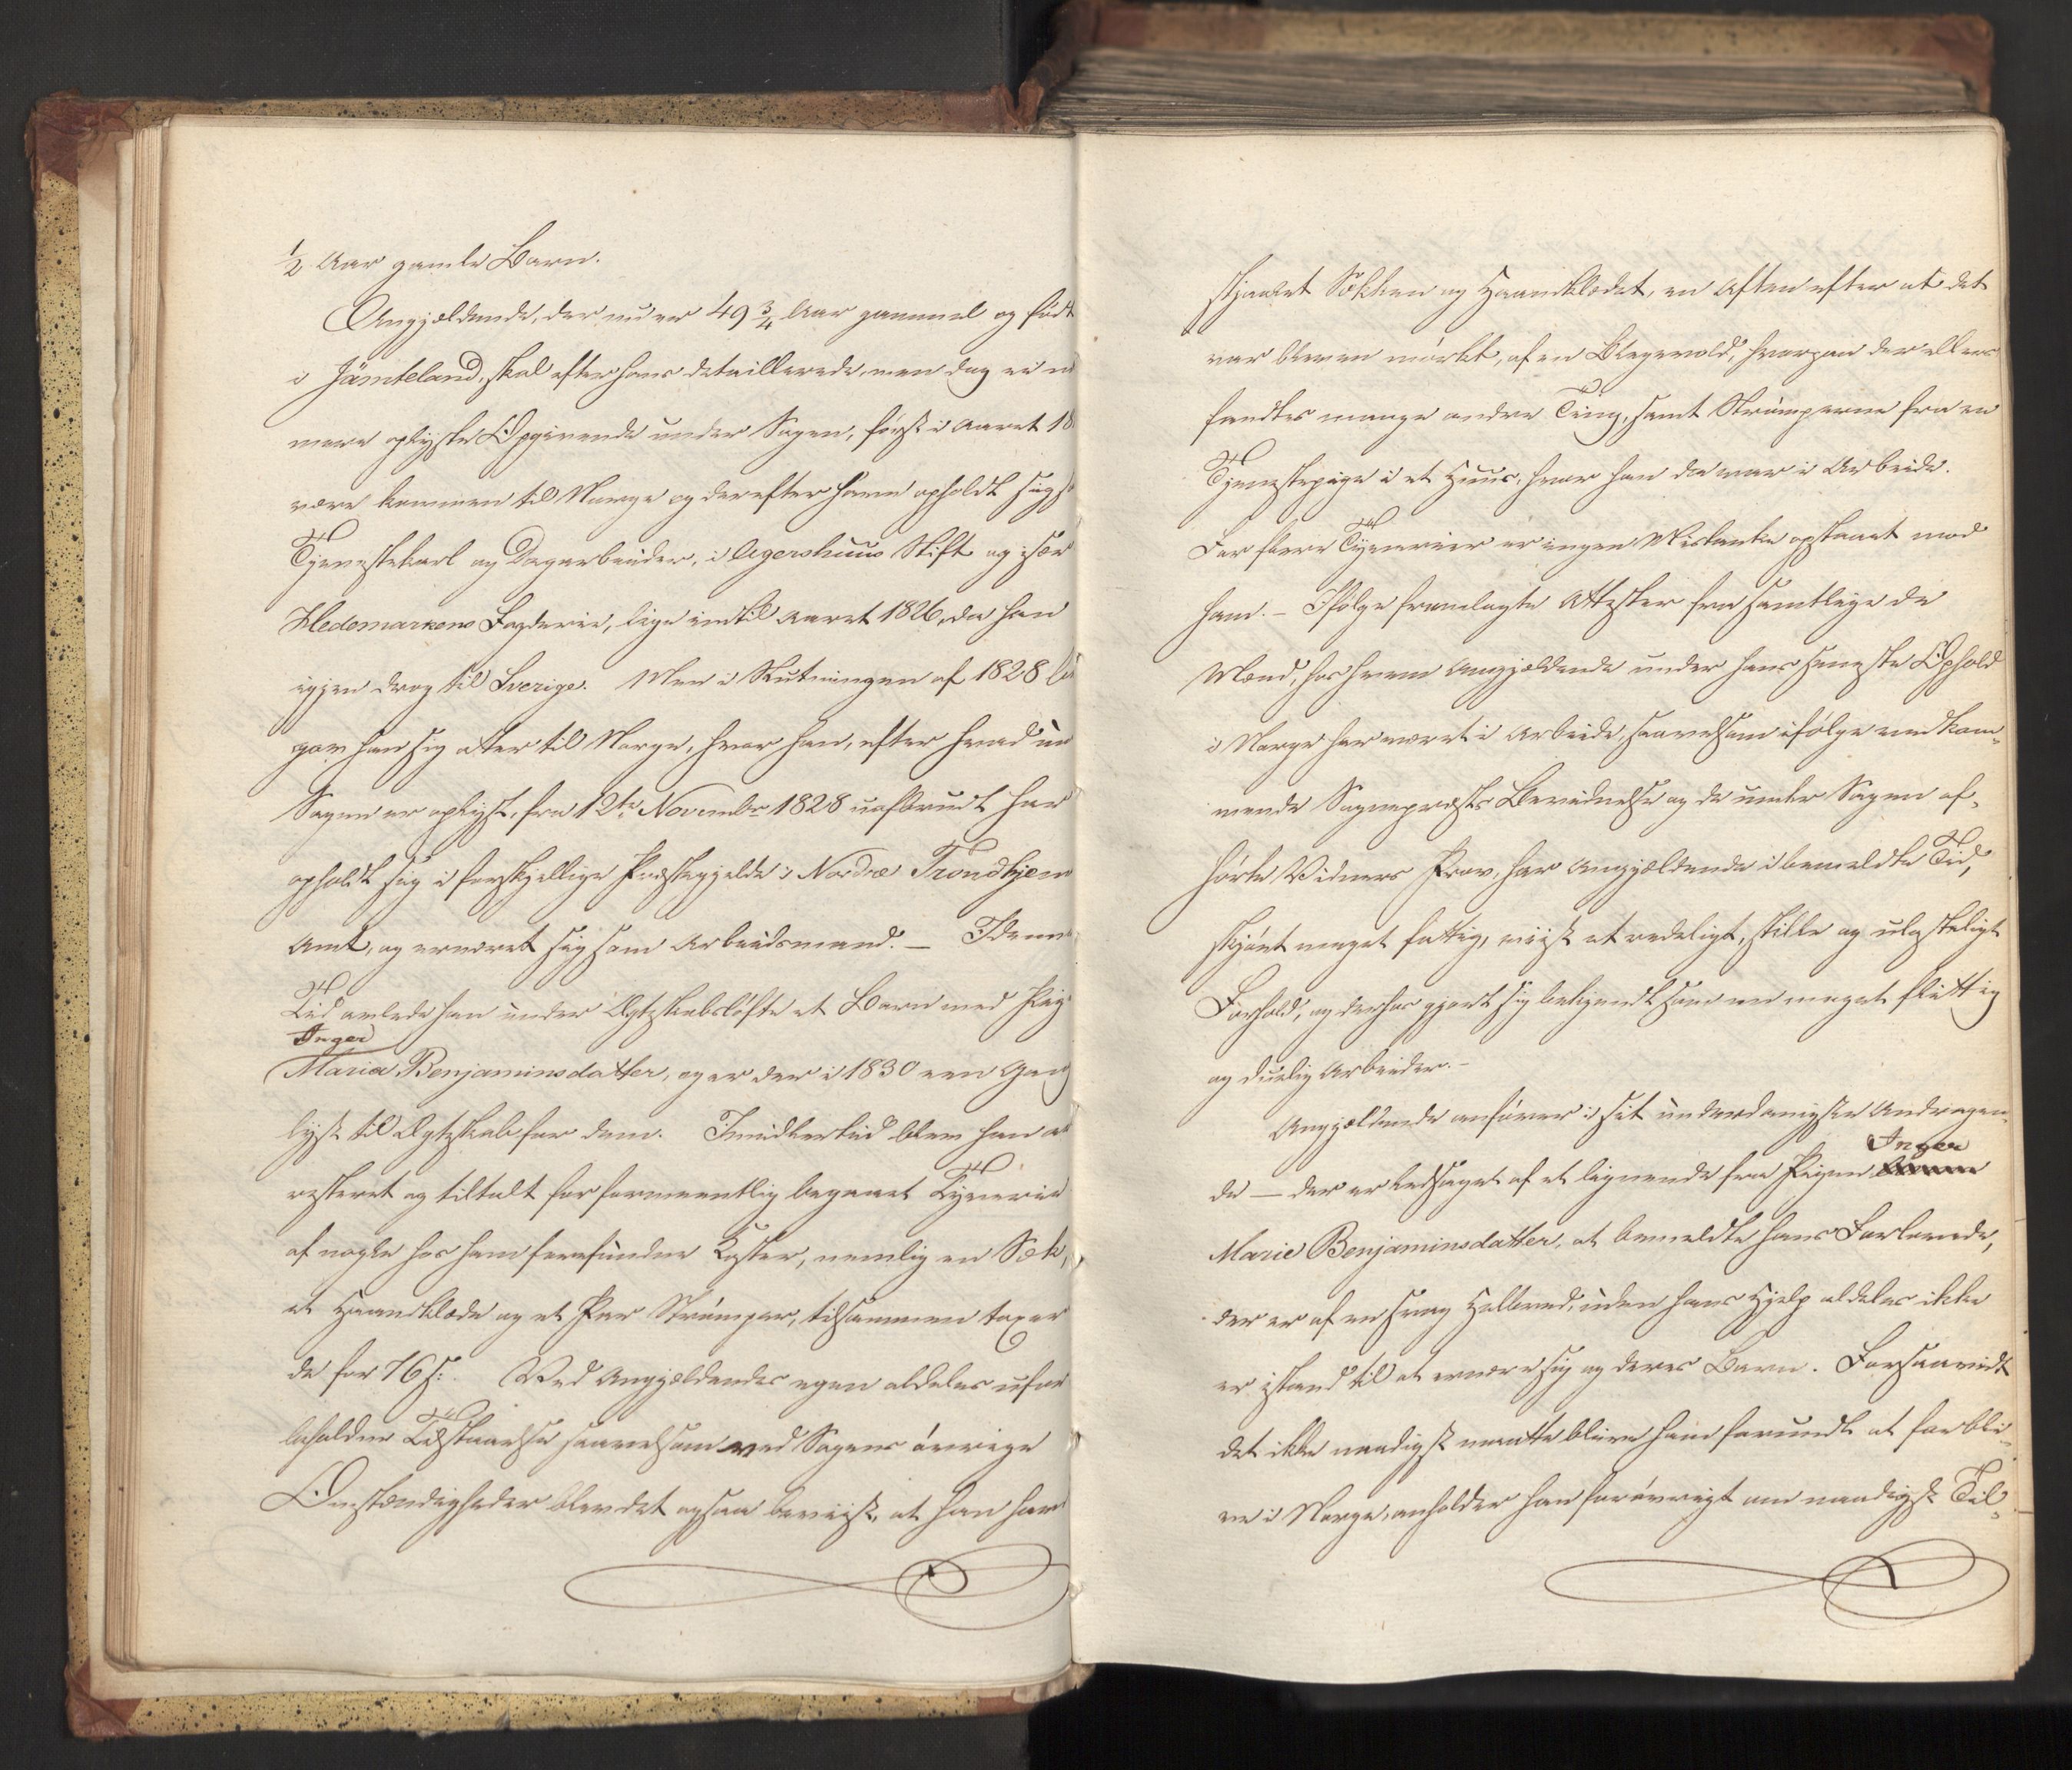 ½ Aar gamle Barn.
Angjældende, der nu er 49 ¾ Aar gammel og født
i Jämteland, skal efter hans detaillerede, men dog ei 
mere oplyste Opgivende under Sagen, først i Aaret 18
være kommen til Norge og derefter have opholdt sig
Tjenestekarl og Dagarbeider, i Agershuus Stift og især
Hedemarkens Fogderie, lige indtil Aaret 1826, da han
igjen drog til Sverige. Men i Slutningen af 1828 be
gav han sig atter til Norge, hvor han, efter hvad un
Sagen er oplyst, fra 12te Novembr 1828 uafbrudt har
opholdt sig i forskjellige Præstegjelde i Nordre Trondhjems
Amt, og ernæret sig som Arbeidsmand. — I denne
Tid avlede han under Ægteskabsløfte et Barn med Pige
Inger
Maria Benjaminsdatter, og er der i 1830 een Gang
lyst til Ægteskab for dem. Imidlertid blev han ar
resteret og tiltalt for formeentlig begaaet Tyverie
af nogle hos ham forefundne Koster, nemlig en Sæk,
et Haandklæde og et Par Strømper, tilsammen taxer
de for 76 s. Ved Angjældendes egen aldeles ufor
beholdne Tilstaaelse saavelsom ved Sagens øvrige
Omstændigheder blev det ogsaa beviist, at han har
stjaalet Sækken og Haandklædet, en Aften efter at det
var bleven mørkt, af en Blegevold, hvorpaa der ellers
fandtes mange andre Ting, samt Strømperne fra en
Tjenestepige i et Huus, hvor han da var i Arbeide.
For flere Tyverier er ingen Mistanke opstaaet mod
ham. – Ifølge fremlagte Attester fra samtlige de
Mænd, hos hvem Angjældende under hans seneste Ophold
i Norge har været i Arbeide, saavelsom ifølge vedkom-
mende Sognepræsts Bevidnelse og de under Sagen af-
hørte Vidners Prov, har Angjældende i bemeldte Tid,
skjønt meget fattig, viist et redeligt, stille og ulasteligt
Forhold, og derhos gjort sig bekjendt som en meget flittig
og duelig Arbeider. –
Angjældende anfører i sit underdanigste Andragen-
de – der er ledsaget af et lignende fra Pigen
Inger
Marie Benjaminsdatter, at bemeldte hans Forlovede,
der er af en svag Helbred, uden hans Hjelp aldeles ikke
er istand til at ernære sig og deres Barn. Forsaavidt
det ikke naadigst maatte blive ham forundt at forbli-
ve i Norge, anholder han forøvrigt om naadigst Til-